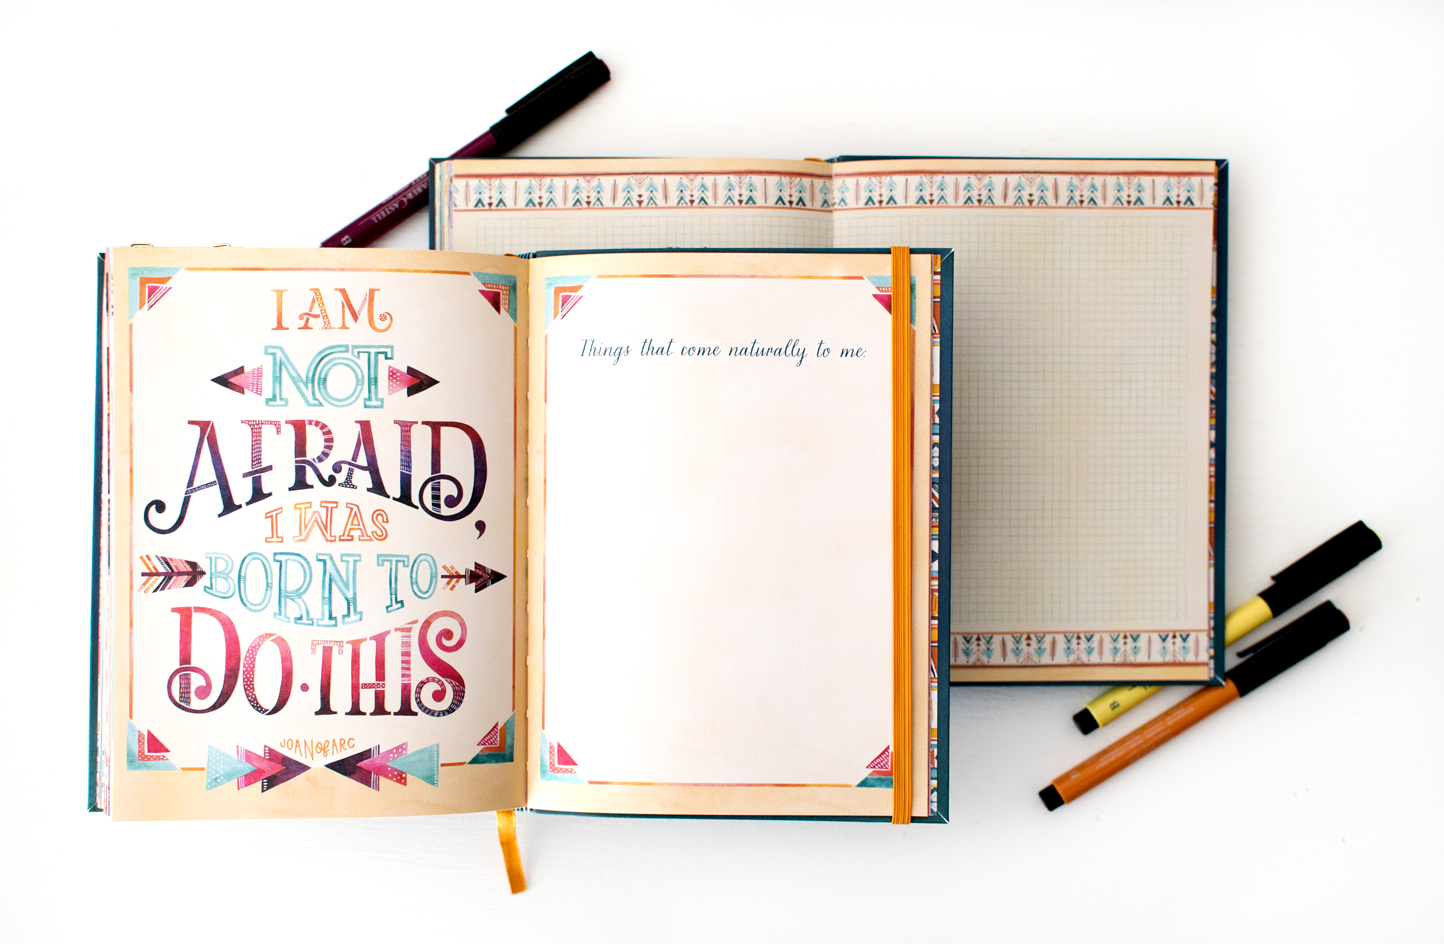 I AM
NOT
AFRAID,
I WAS
BORN TO
DO·THIS
JOAN of ARC
Things that come naturally to me:
FABER-CASTELL
B
B